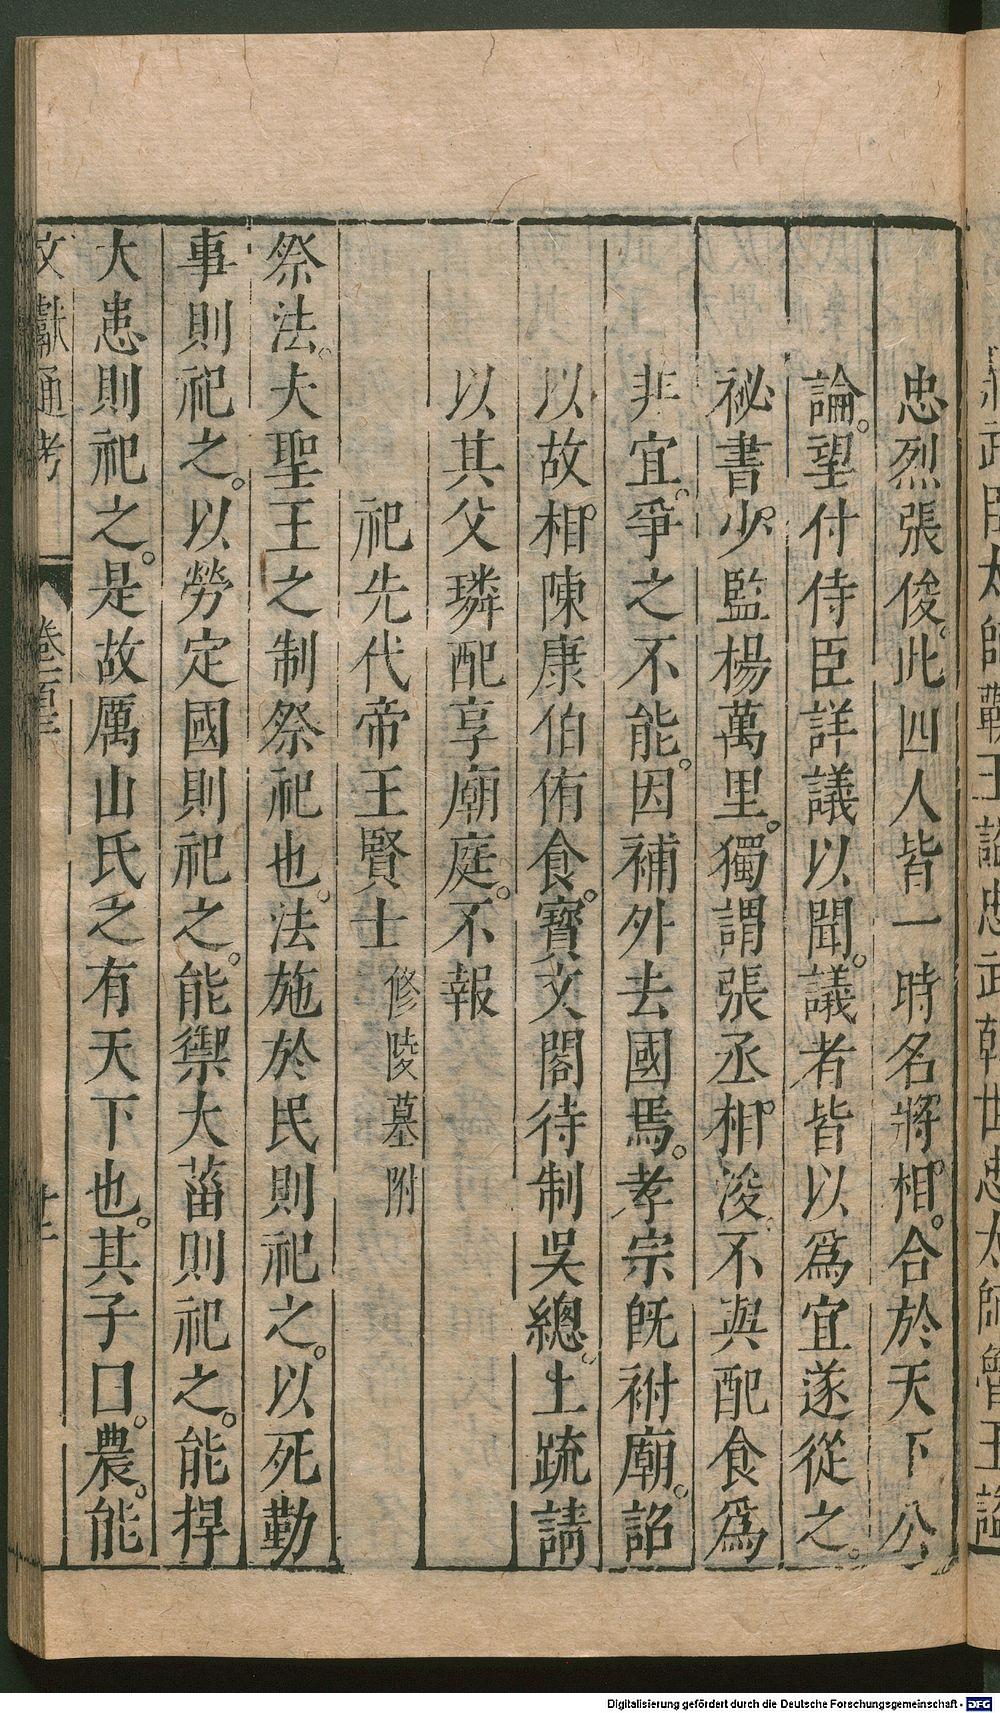 忠烈張俊。此四人皆一時名將相。合於天下公
論。望付侍臣詳議以聞。議者皆以爲宜遂從之。
祕書少監楊萬里。獨謂張丞相浚。不與配食爲
非宜。爭之不能。因補外去國焉。孝宗旣祔廟。詔
以故相陳康伯侑食。寶文閣待制吳總。上疏請
以其父璘配享廟庭。不報
祀先代帝王賢士 修陵墓附
祭法。夫聖王之制祭祀也。法施於民則祀之。以死勤
事則祀之。以勞定國則祀之。能禦大菑則祀之。能捍
大患則祀之。是故厲山氏之有天下也。其子曰農。能
文獻通考 卷一百三 廿二
Digitalisierung gefördert durch die Deutsche Forschungsgemeinschaft - DFG